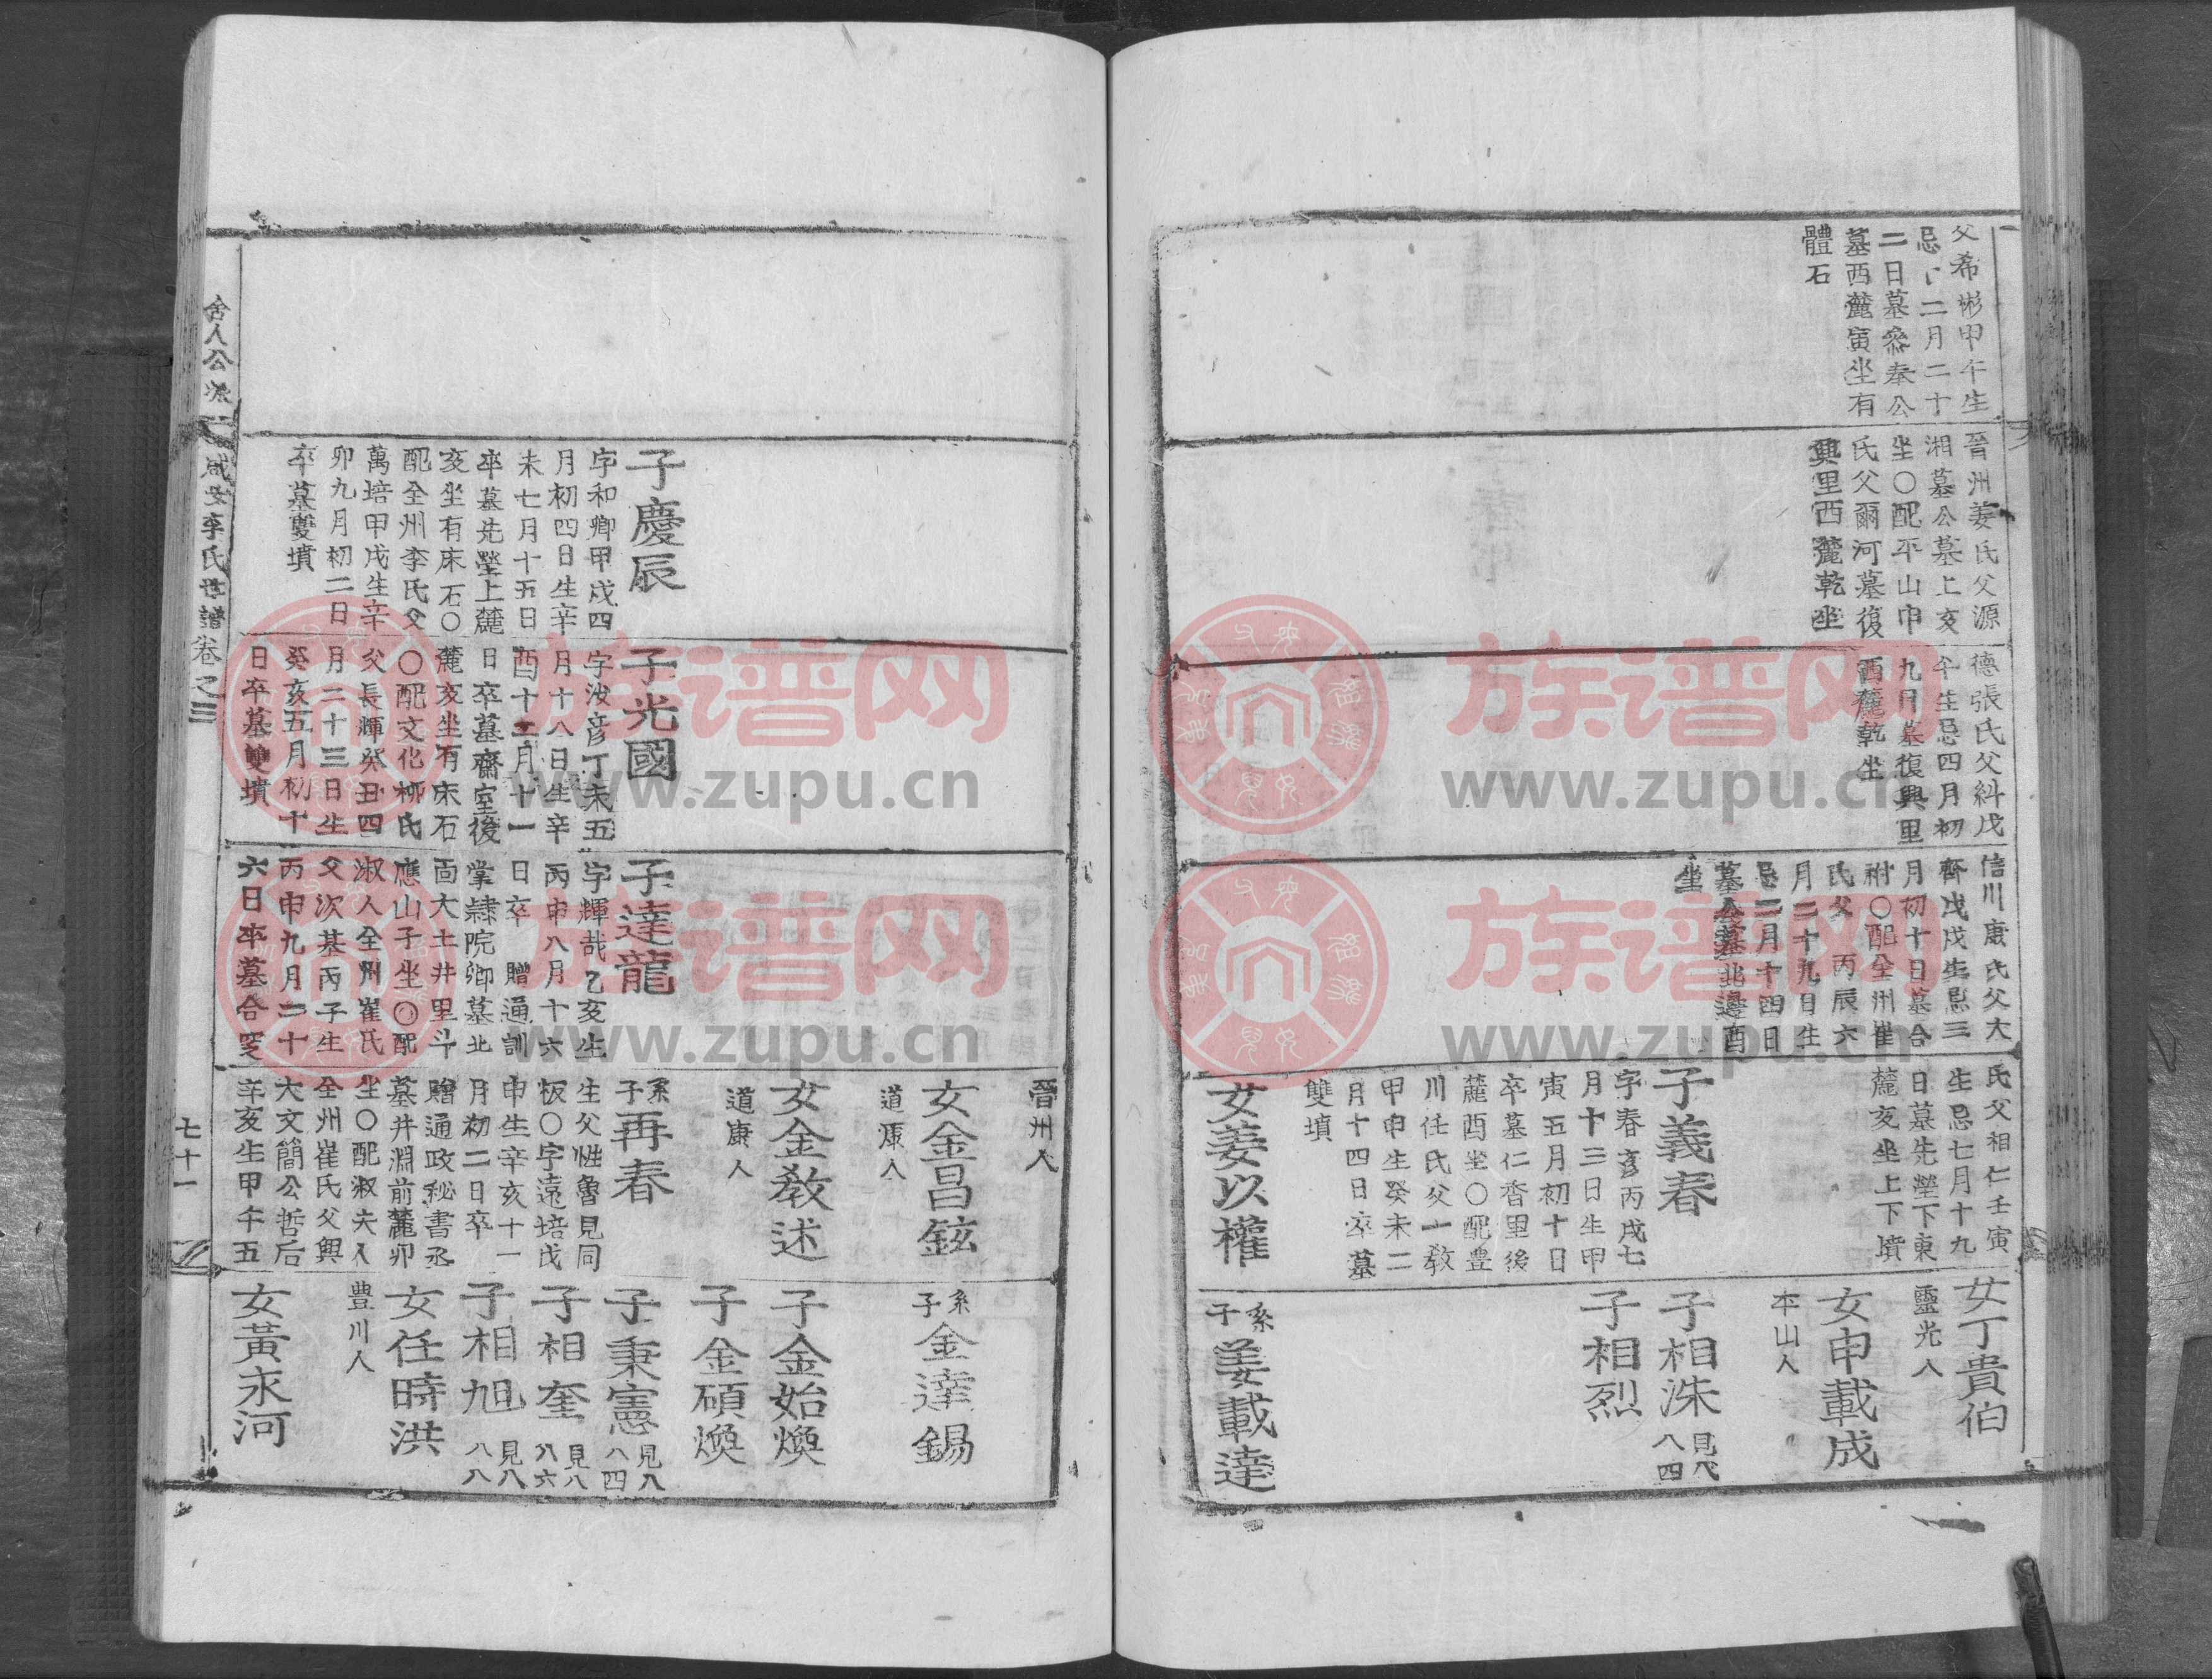 父希彬甲午生
二月二十
二日墓參奉公
墓西麓寅坐有
體石
晉州姜氏父源
湘墓公墓上亥
坐〇配平山申
氏父爾河墓復
興里西麓乾坐
德張氏父糾戊
午生忌四月初
九日墓復興里
西麓乾坐
信川康氏父大
齊戊戌生忌三
月初十日墓合
祔〇配全州崔
氏父 丙辰六
月二十九日生
忌二月十四日
墓公墓北邊酉
坐
氏父相仁壬寅
生忌七月十九
日墓先塋下東
麓亥坐上下墳
子義春
字春彥丙戌七
月十三日生甲
寅五月初十日
卒墓仁香里後
麓酉坐〇配豊
川任氏父一敎
甲申生癸未二
月十四日卒墓
雙墳
女姜以權
女丁貴伯
靈光人
女申載成
本山人
子相洙
見八
八四
子相烈
系子
姜載達
子慶辰
字和卿甲戌四
月初四日生辛
未七月十五日
卒墓先塋上麓
亥坐有床石〇
配全州李氏父
萬培甲戌生辛
卯九月初二日
卒墓雙墳
子光國
字汝彦丁未五
月十八日生辛
酉十二月十一
日卒墓齋室後
麓亥坐有床石
〇配文化柳氏
父長輝癸丑四
月二十三日生
癸亥五月初十
日卒墓雙墳
子達龍
字輝哉乙亥生
丙申八月十六
日卒 贈通訓
掌隷院卿墓北
面大土井里斗
應山子坐〇配
淑人全州崔氏
父次基丙子生
丙申九月二十
六日卒墓合窆
晉州人
女金昌鉉
道康人
女金敎述
道康人
系子
再春
生父性魯見同
板〇字遠培戊
申生辛亥十一
月初二日卒
贈通政秘書丞
墓井淵前麓卯
坐〇配淑夫人
全州崔氏父興
大文簡公哲后
辛亥生甲午五
系子
金達錫
子金始煥
子金碩煥
子秉憲
見八
八四
子相奎
見八
八六
子相旭
見八
八八
女任時洪
豊川人
女黃永河
舍人公派 咸安李氏世譜 卷之三
七十一
族谱网
www.zupu.cn
族谱网
www.zupu.cn
族谱网
www.zupu.cn
族谱网
www.zupu.cn